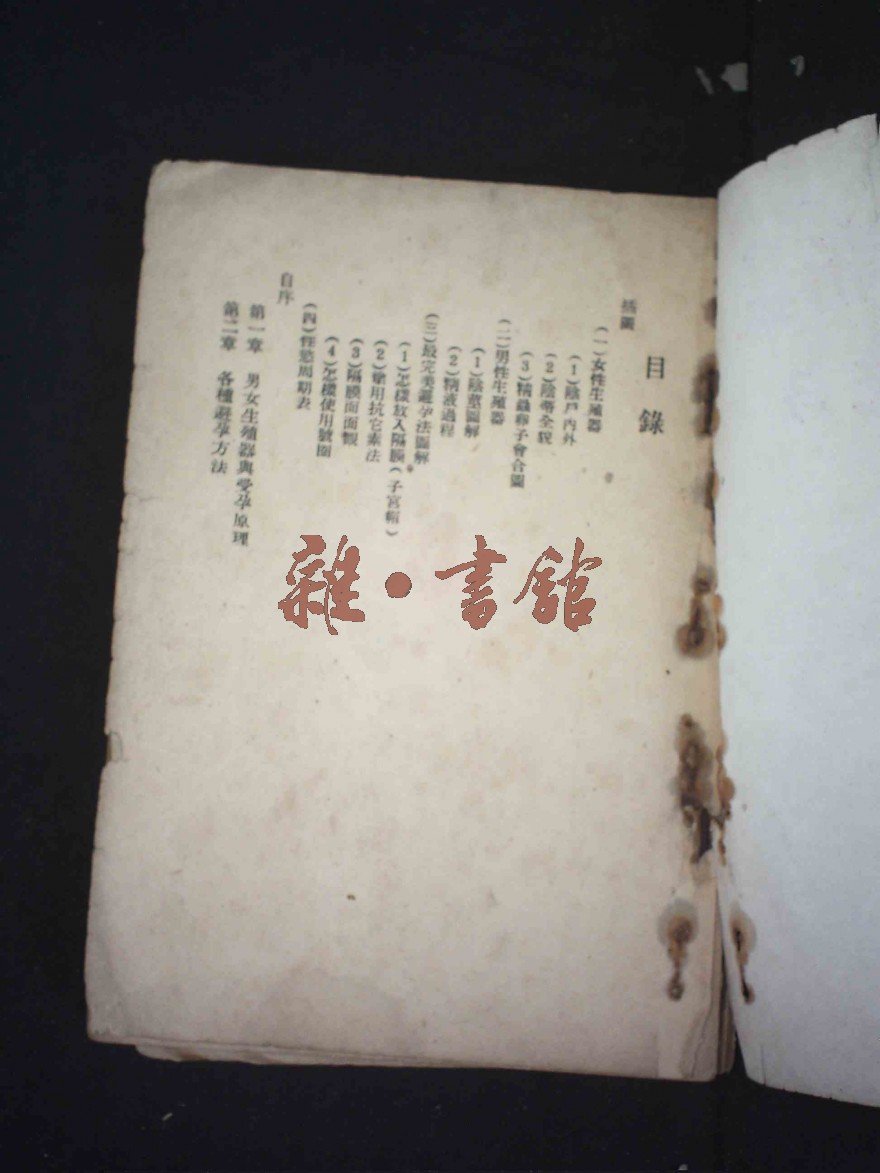 目錄
插圖
(一)女性生殖器
(1)陰戶內外
(2)陰蒂全貌
(3)精蟲卵子會合圖
(二)男性生殖器
(1)陰莖圖解
(2)精液過程
(三)最完美避孕法圖解
(1)怎樣放入隔膜(子宮帽)
(2)藥用抗它素法
(3)隔膜面面觀
(4)怎樣使用號圈
(四)性慾周期表
自序
第一章 男女生殖器與受孕原理
第二章 各種避孕方法
雜·書館